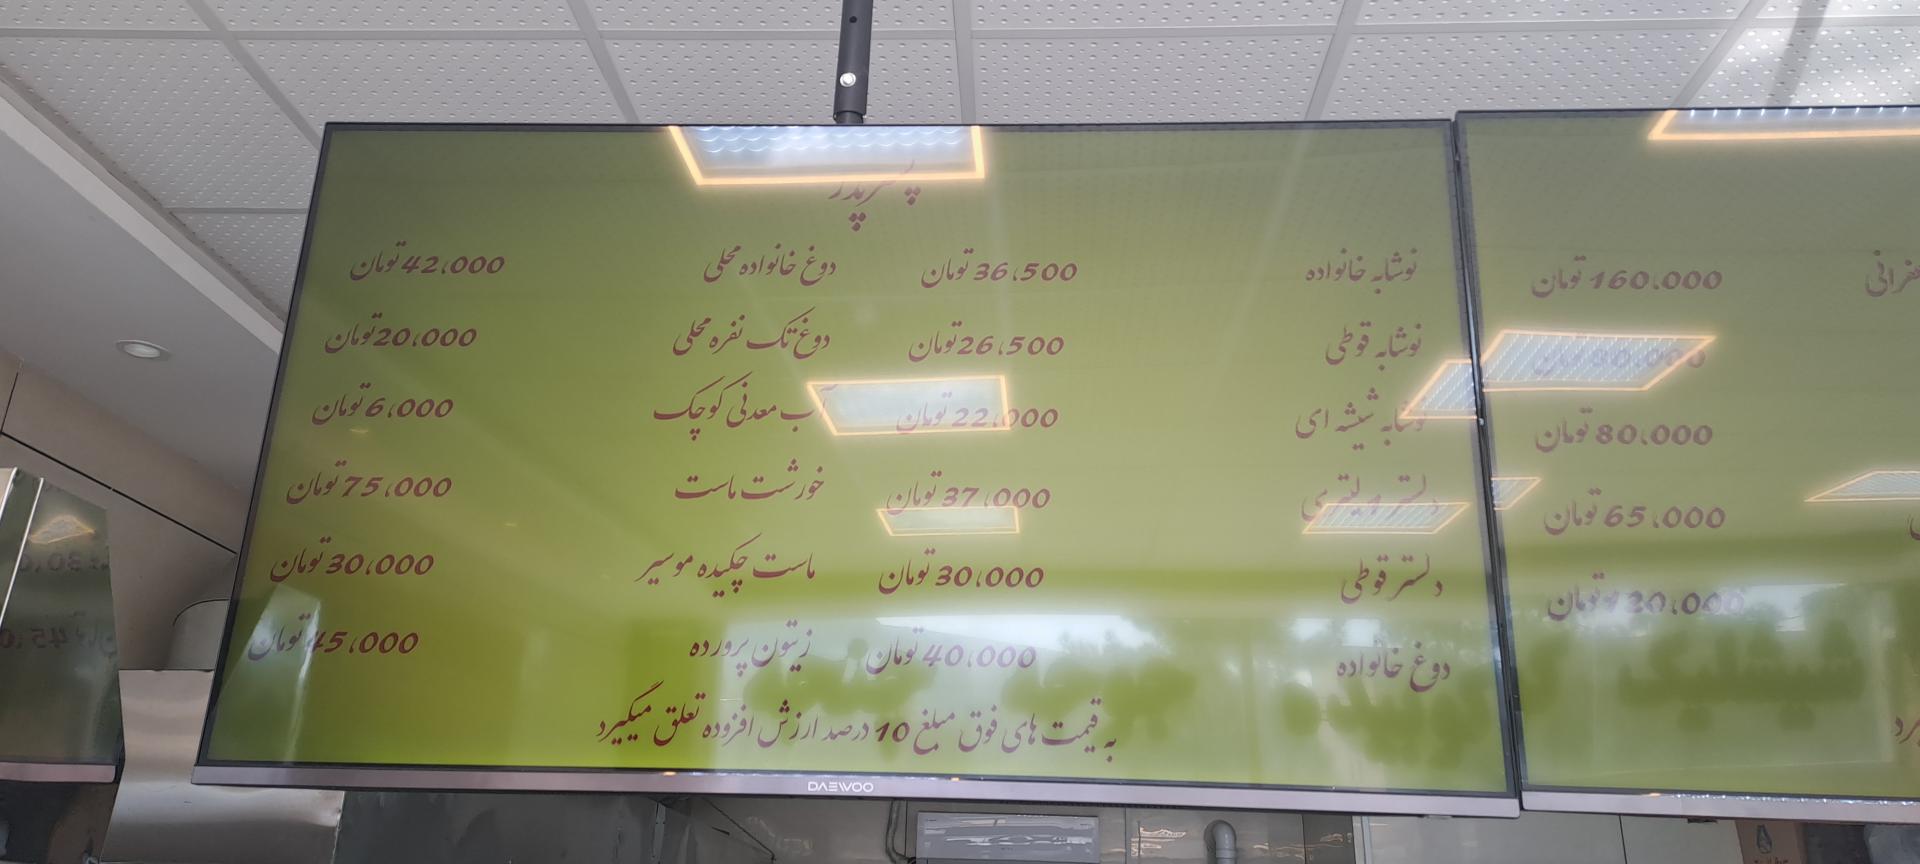 نوشابه خانواده 36،500 تومان دوغ خانواده محلی 42،000 تومان
نوشابه قوطی 26،500 تومان دوغ تک نفره محلی 20،000 تومان
نوشابه شیشه ای 22،000 تومان آب معدنی کوچک 6،000 تومان
دلستر لیتری 37،000 تومان خورشت ماست 75،000 تومان
دلستر قوطی 30،000 تومان ماست چکیده موسیر 30،000 تومان
دوغ خانواده 40،000 تومان زیتون پرورده 45،000 تومان
به قیمت های فوق مبلغ 10 درصد ارزش افزوده تعلق میگیرد
DAEWOO
160،000 تومان
80،000 تومان
65،000 تومان